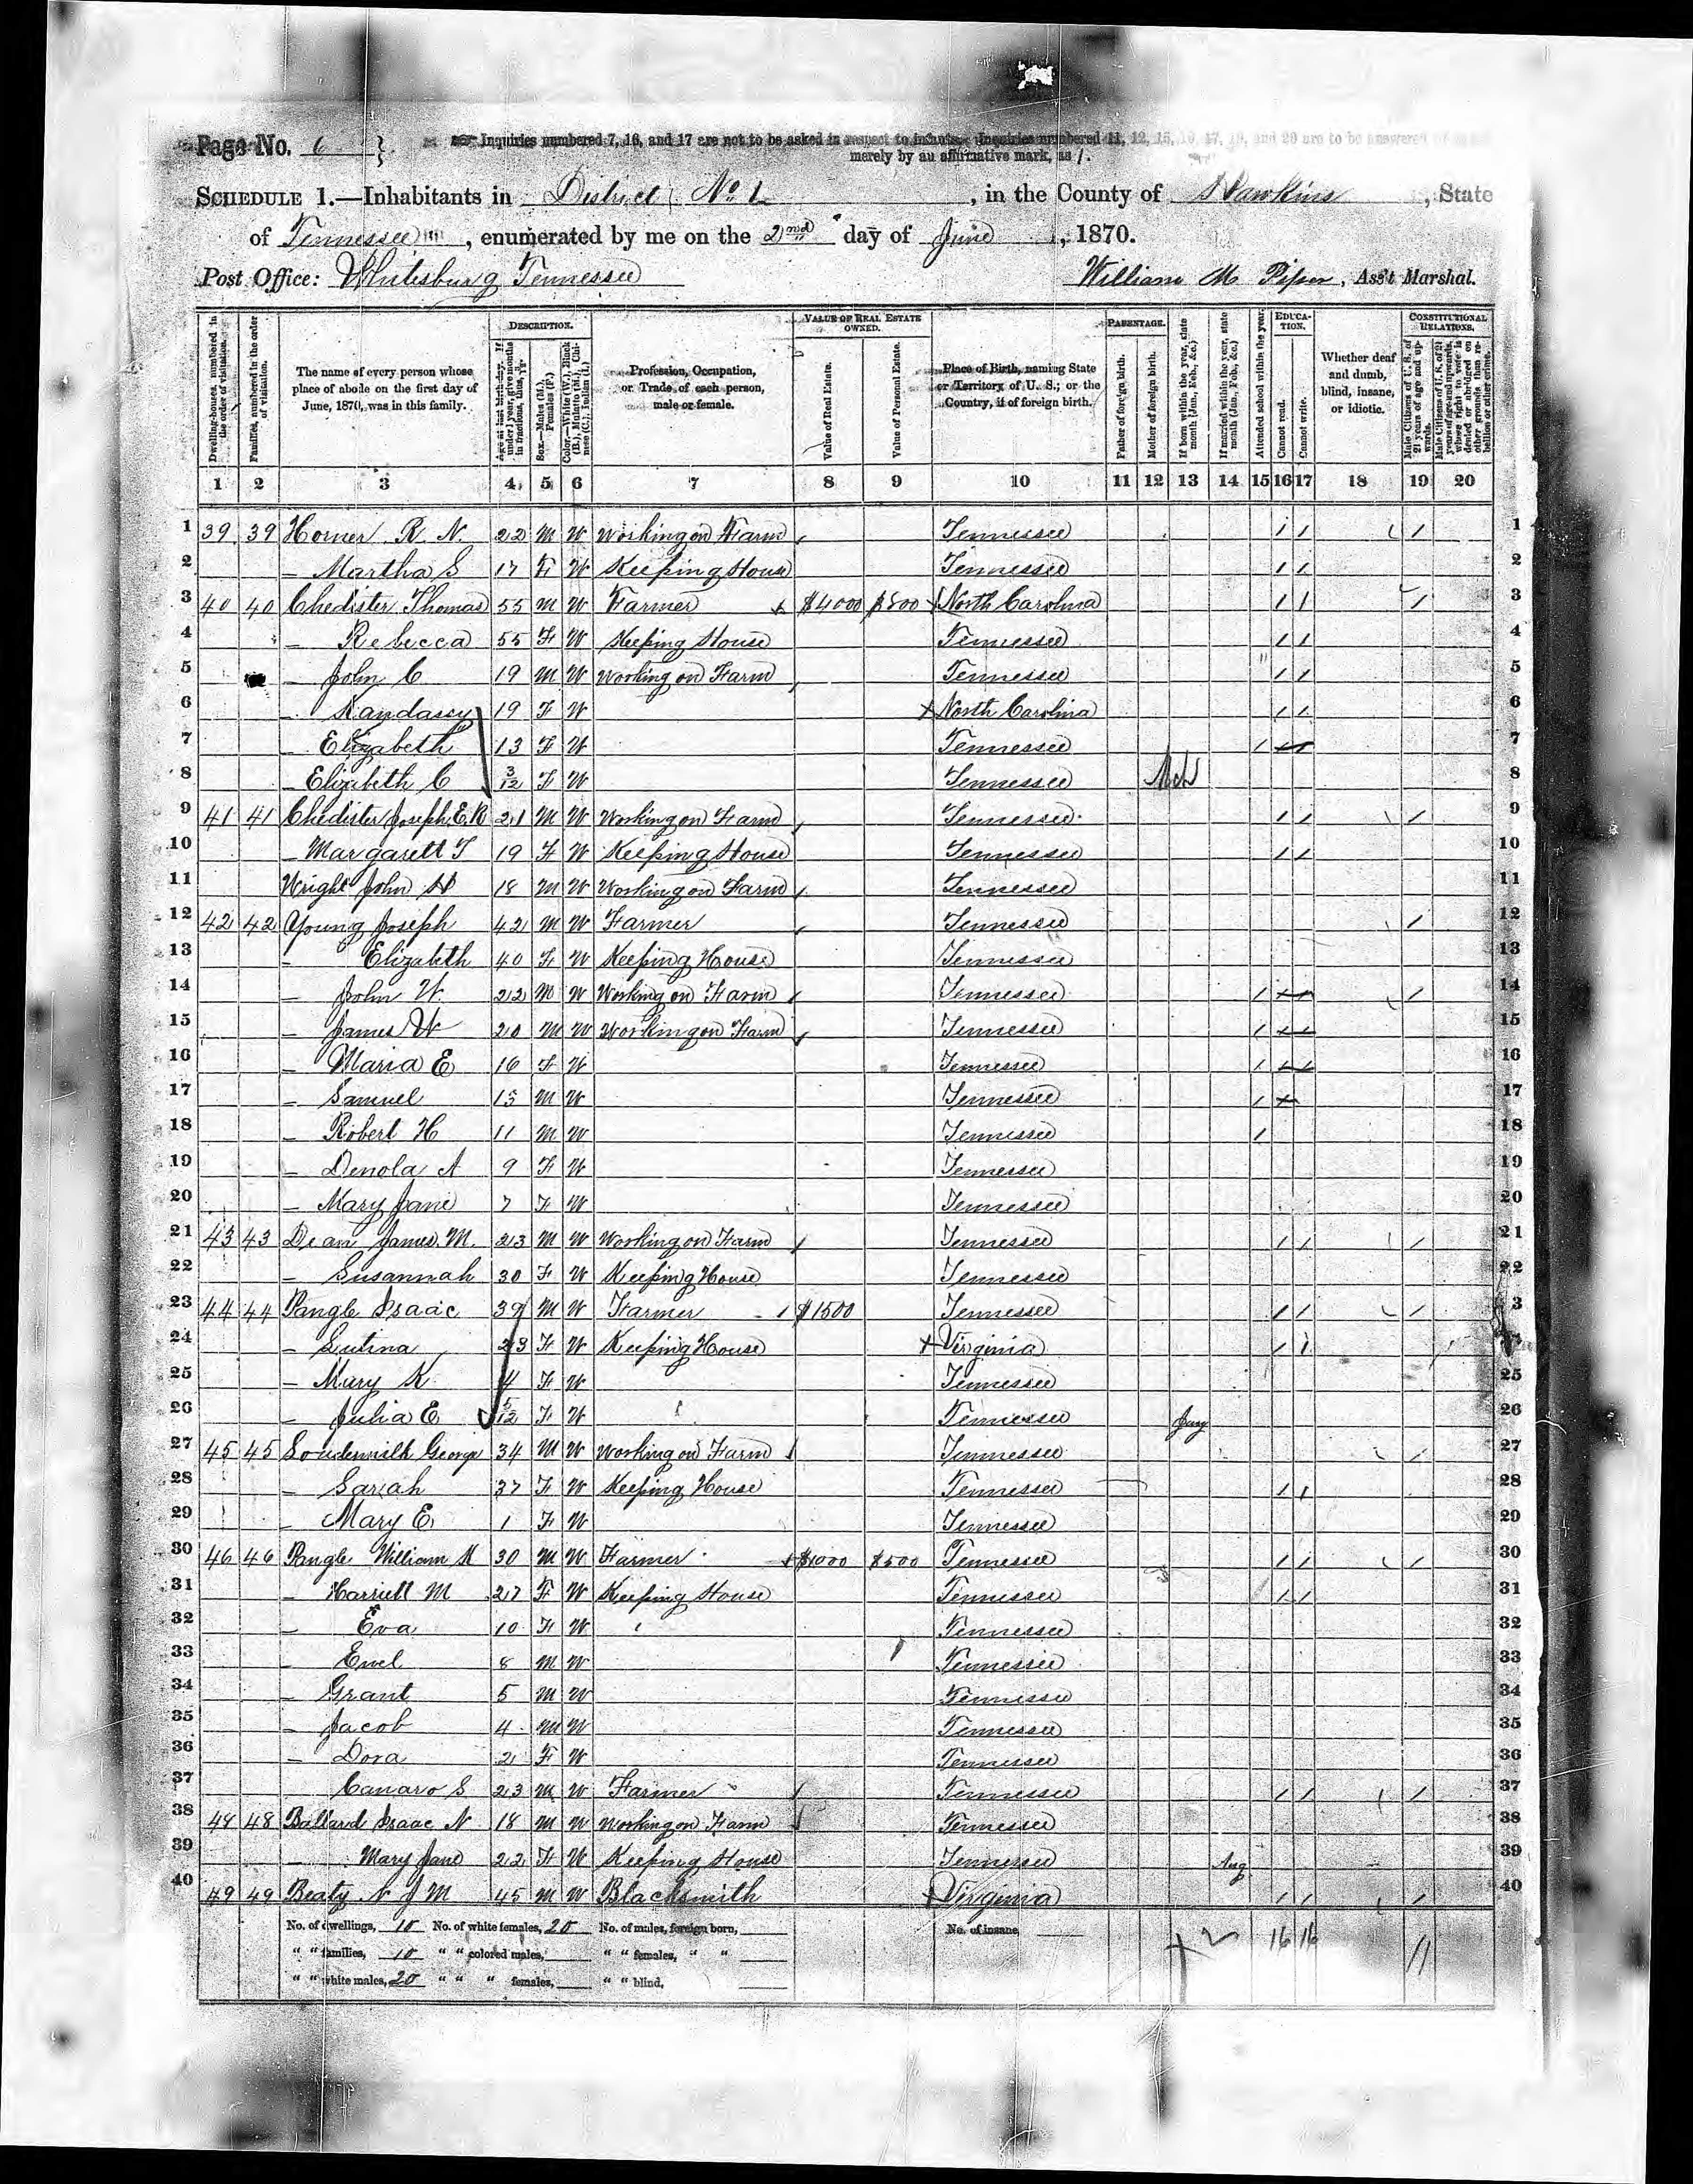 Page No. 6 } Inquiries numbered 7, 16, and 17 are not to be asked in respect to infants. Inquiries numbered 11, 12, 15, 16, 17, 19, and 20 are to be answered
merely by an affirmative mark, as /.
SCHEDULE 1.—Inhabitants in District No 1, in the County of Hawkins, State
of Tennessee, enumerated by me on the 2nd day of June, 1870.
Post Office: Whitesburg Tennessee William M Piper, Ass't Marshal.
Dwelling-houses, numbered in the order of visitation.
Families, numbered in the order of visitation.
The name of every person whose place of abode on the first day of June, 1870, was in this family.
DESCRIPTION.
Age at last birth-day. If under 1 year, give months in fractions, thus, 3/12.
Sex.—Males (M.), Females (F.)
Color.—White (W.), Black (B.), Mulatto (M.), Chinese (C.), Indian (I.)
Profession, Occupation, or Trade of each person, male or female.
VALUE OF REAL ESTATE OWNED.
Value of Real Estate.
Value of Personal Estate.
Place of Birth, naming State or Territory of U. S.; or the Country, if of foreign birth.
PARENTAGE.
Father of foreign birth.
Mother of foreign birth.
If born within the year, state month (Jan., Feb., &c.)
If married within the year, state month (Jan., Feb., &c.)
Attended school within the year.
EDUCATION.
Cannot read.
Cannot write.
Whether deaf and dumb, blind, insane, or idiotic.
CONSTITUTIONAL RELATIONS.
Male Citizens of U. S. of 21 years of age and upwards.
Male Citizens of U. S. of 21 years of age and upwards, whose right to vote is denied or abridged on other grounds than rebellion or other crime.
1 2 3 4 5 6 7 8 9 10 11 12 13 14 15 16 17 18 19 20
1 39 39 Horner R. N. 22 M W Working on Farm Tennessee / / / 1
2 — Martha S 17 F W Keeping House Tennessee / / 2
3 40 40 Chedister Thomas 55 M W Farmer $4000 $800 North Carolina / / / 3
4 — Rebecca 55 F W Keeping House Tennessee / / 4
5 — John C 19 M W Working on Farm Tennessee / / 5
6 — Kandassy 19 F W North Carolina / / 6
7 — Elizabeth 13 F W Tennessee / 7
8 — Elizabeth C 3/12 F W Tennessee 8
9 41 41 Chedister Joseph E. R 21 M W Working on Farm Tennessee / / / 9
10 — Margarett T 19 F W Keeping House Tennessee / / 10
11 Wright John H 18 M W Working on Farm Tennessee 11
12 42 42 Young Joseph 42 M W Farmer Tennessee / 12
13 — Elizabeth 40 F W Keeping House Tennessee 13
14 — John W. 22 M W Working on Farm Tennessee / / 14
15 — James W 20 M W Working on Farm Tennessee / 15
16 — Maria E 16 F W Tennessee / 16
17 — Samuel 13 M W Tennessee / 17
18 — Robert H 11 M W Tennessee / 18
19 — Denola A 9 F W Tennessee 19
20 — Mary Jane 7 F W Tennessee 20
21 43 43 Dean James M. 23 M W Working on Farm Tennessee / / / 21
22 — Susannah 30 F W Keeping House Tennessee 22
23 44 44 Pangle Isaac 39 M W Farmer $1500 Tennessee / / / 3
24 — Lutina 23 F W Keeping House Virginia / /
25 — Mary K 4 F W Tennessee 25
26 — Julia E 5/12 F W Tennessee Jany 26
27 45 45 Loudermilk George 34 M W Working on Farm Tennessee / 27
28 — Sarah 37 F W Keeping House Tennessee / / 28
29 — Mary E 1 F W Tennessee 29
30 46 46 Pangle William M 30 M W Farmer $1000 $500 Tennessee / / / 30
31 — Harriett M 27 F W Keeping House Tennessee / / 31
32 — Eva 10 F W Tennessee 32
33 — Ewel 8 M W Tennessee 33
34 — Grant 5 M W Tennessee 34
35 — Jacob 4 M W Tennessee 35
36 — Dora 2 F W Tennessee 36
37 Canaro S 23 M W Farmer Tennessee / / / 37
38 48 48 Ballard Isaac N 18 M W Working on Farm Tennessee 38
39 — Mary Jane 22 F W Keeping House Tennessee Aug 39
40 49 49 Beaty N J M 45 M W Blacksmith Virginia / / / 40
No. of dwellings, 10 No. of white females, 20 No. of males, foreign born, No. of insane, 16 16 11
" " families, 10 " " colored males, " " females, " "
" " white males, 20 " " " females, " " blind,